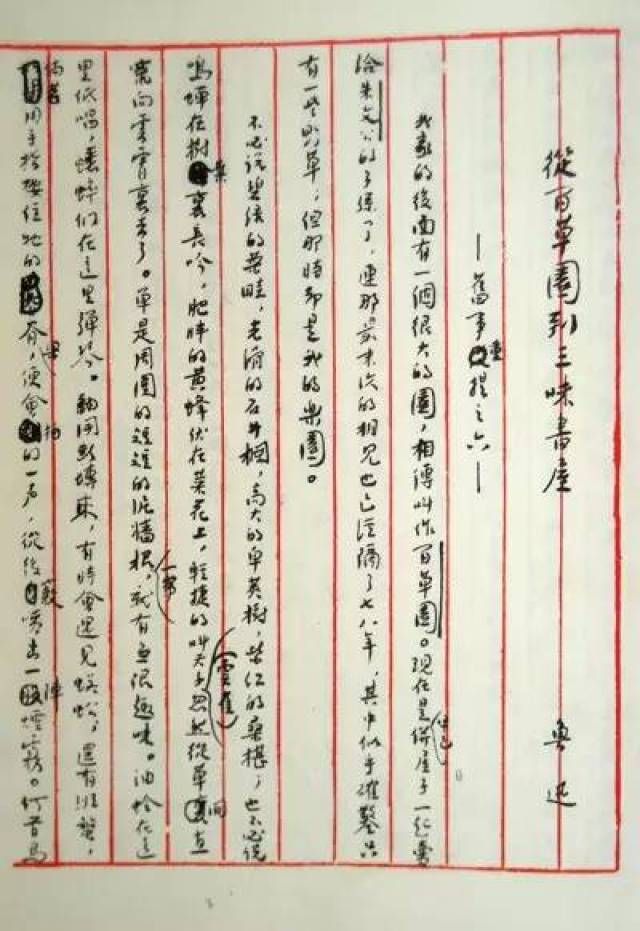 從百草園到三味書屋　魯迅
—舊事重提之六—
我家的後面有一個很大的園，相傳叫作百草園。現在是早已併屋子一起賣
給朱文公的子孫了，連那最末次的相見也已經隔了七八年，其中似乎確鑿只
有一些野草；但那時却是我的樂園。
不必說碧綠的菜畦，光滑的石井欄，高大的皁莢樹，紫紅的桑椹；也不必說
鳴蟬在樹葉裏長吟，肥胖的黄蜂伏在菜花上，輕捷的叫天子(雲雀)忽然從草間直
竄向雲霄裏去了。單是周圍的短短的泥牆根一帶，就有無限趣味。油蛉在這
里低唱，蟋蟀們在這里彈琴。翻開斷磚來，有時會遇見蜈蚣；還有斑蝥，
倘若用手指按住牠的脊梁，便會拍的一声，從後竅噴出一陣煙霧。何首烏